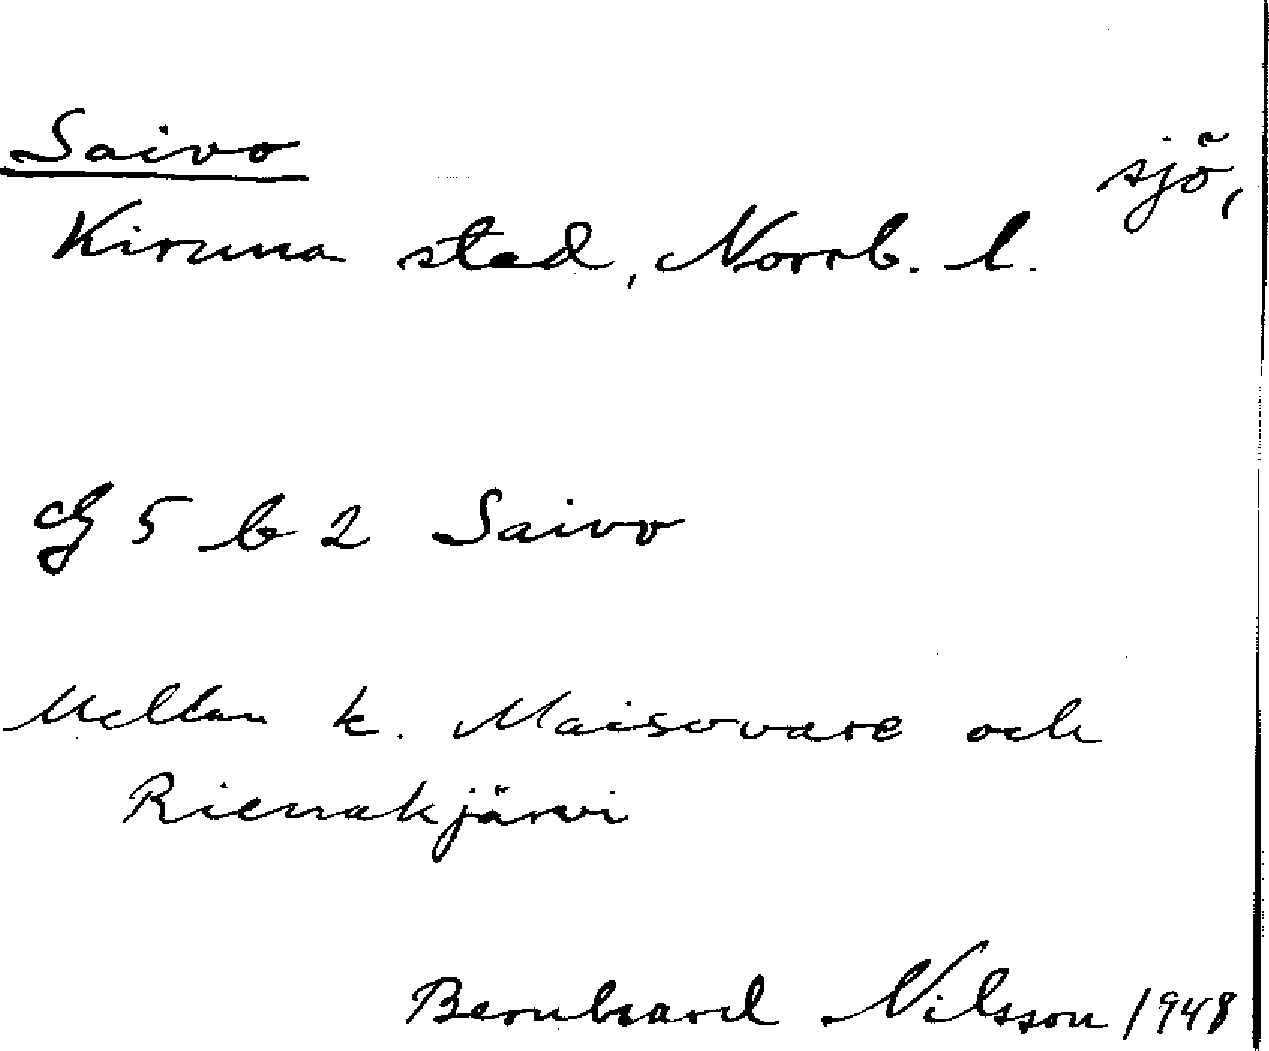 Saivo
sjö,
Kiruna stad, Norrb. l.
5 b 2 Saivo
Mellan k. Maisovare och
Rienakjärvi
Bernhard Nilsson 1948